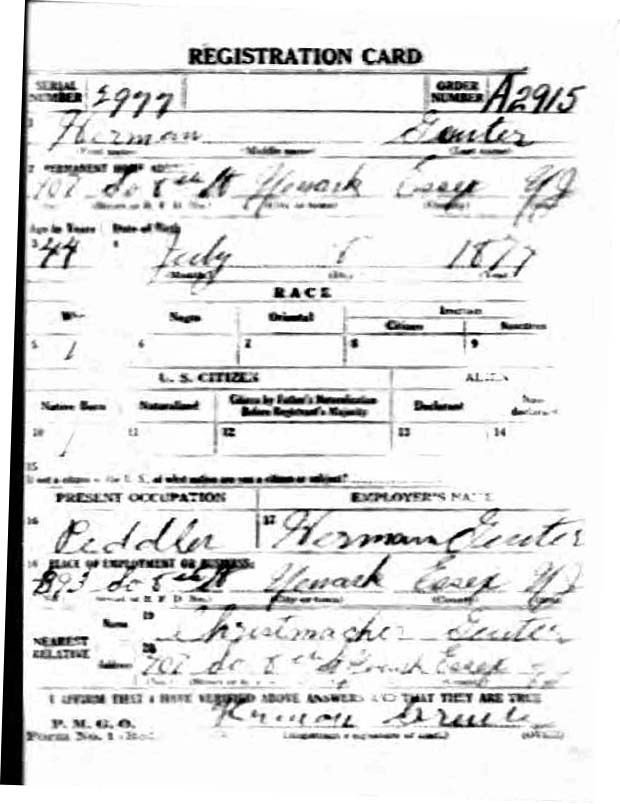 REGISTRATION CARD
SERIAL NUMBER 2977 ORDER NUMBER A2915
1 Herman Genter
(First name) (Middle name) (Last name)
2 PERMANENT HOME ADDRESS
707 So 8th St Newark Essex NJ
(Street or R. F. D. No.) (City or town) (County)
Age in Years Date of Birth
3 44 4 July 8 1877
(Month) (Day) (Year)
RACE
Negro Oriental Indian
Citizen Noncitizen
5 / 6 7 8 9
U. S. CITIZEN ALIEN
Native Born Naturalized Citizen by Father's Naturalization Before Registrant's Majority Declarant Non-declarant
10 / 11 12 13 14
15
If not a citizen of the U. S., of what nation are you a citizen or subject?
PRESENT OCCUPATION EMPLOYER'S NAME
16 Peddler 17 Herman Genter
18 PLACE OF EMPLOYMENT OR BUSINESS:
893 So 8th St Newark Essex NJ
(Street or R. F. D. No.) (City or town) (County)
Name 19 Genter
NEAREST RELATIVE 20
Address 707 So 8th St Newark Essex
I AFFIRM THAT I HAVE VERIFIED ABOVE ANSWERS AND THAT THEY ARE TRUE
P. M. G. O.
Form No. 1 Herman Genter
(Registrant's signature or mark) (OVER)